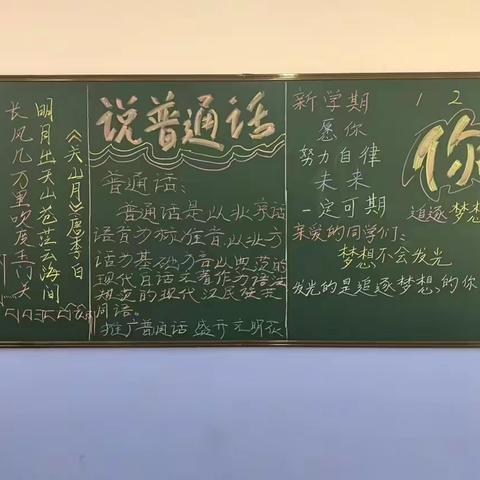 《关山月》唐李白
明月出天山苍茫云海间
长风几万里吹度玉门关
说普通话
普通话:
普通话是以北京话
语音为标准音以北方
话为基础方言以典范的
现代白话文著作为语法
规范的现代汉民族共
同语。
推广普通话 盛开文明花
新学期
愿你
努力自律
未来
一定可期
1 2
你
追逐梦想
亲爱的同学们:
梦想不会发光
发光的是追逐梦想的你